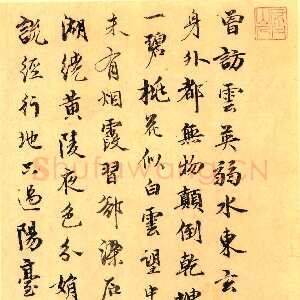 曾訪雲英弱水東玄
身外都無物顛倒乾坤
一碧桃花似白雲望中
未有烟霞習郤深石
湖繞黃陵夜色分娟
說經行地只過陽臺
ShufaWang.CN